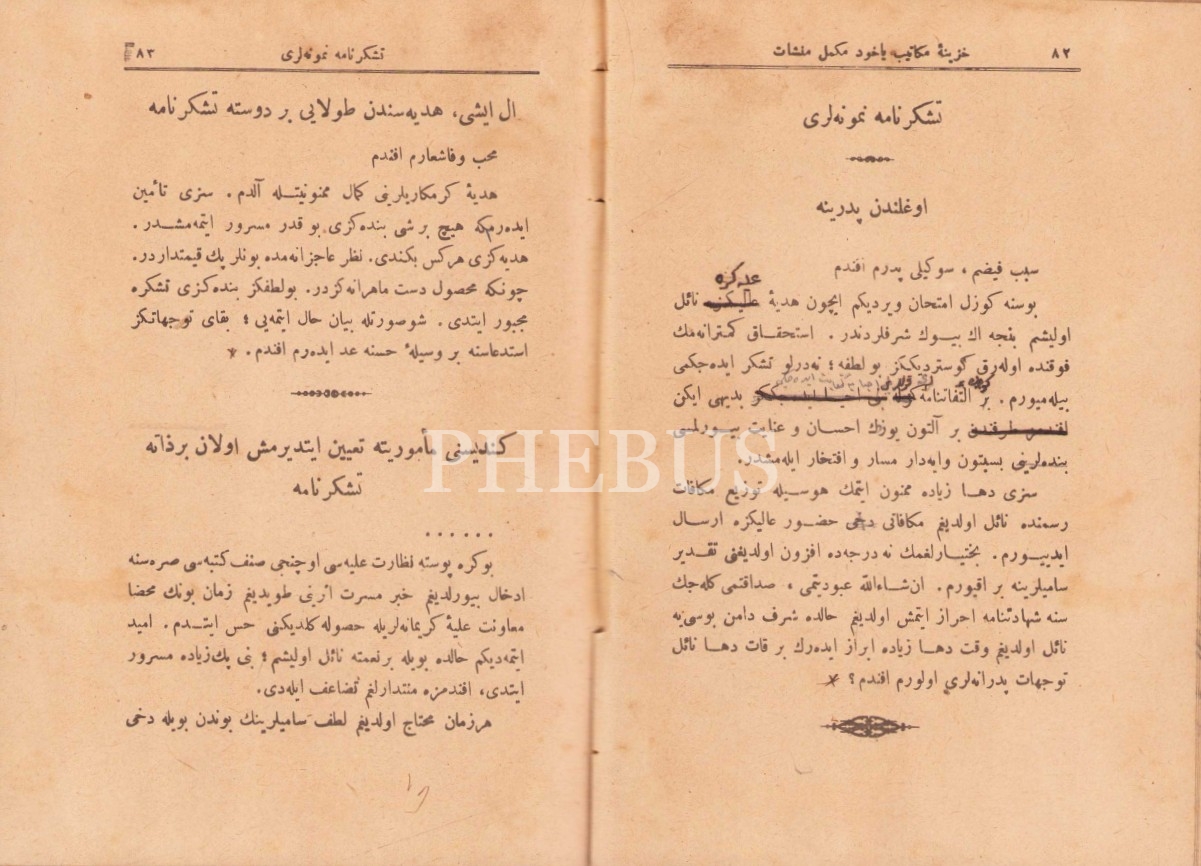 ٨٢
خزینهٔ مکاتیب یاخود مکمل منشئات
تشکرنامه نمونه‌لری
اوغلندن پدرینه
سبب فیضم ، سوکیلی پدرم افندم
بوسنه کوزل امتحان ویردیکم ایچون هدیهٔ علیکزه نائل
اولیشم بنجه اك بیوك شرفلردندر . استحقاق کمترانه‌مك
فوقنده اوله‌رق گوستردیککز بو لطفه ؛ نه‌درلو تشکر ایده‌جکمی
بیله‌میورم . بر التفاتنامه بنی احیا ایده‌جککز بدیهی ایکن
بر آلتون یوزك احسان و عنایت بیورلمسی
بنده‌لرینی بسبتون وایه‌دار مسار و افتخار ایله‌مشدر .
سزی دها زیاده ممنون ایتمك هوسیله توزیع مکافات
رسمنده نائل اولدیغم مکافاتی دخی حضور عالیکزه ارسال
ایدییورم . بختیارلغمك نه درجه‌ده افزون اولدیغنی تقدیر
سامیلرینه بر اقیورم . ان‌شاءالله عبودیتمی ، صداقتمی کله‌جك
سنه شهادتنامه احراز ایتمش اولدیغم حالده شرف دامن بوسی‌یه
نائل اولدیغم وقت دها زیاده ابراز ایده‌رك بر قات دها نائل
توجهات پدرانه‌لری اولورم افندم ؟ *
٨٣
تشکرنامه نمونه‌لری
ال ایشی، هدیه‌سندن طولایی بر دوسته تشکرنامه
محب وفاشعارم افندم
هدیهٔ کرمکاریلرینی کمال ممنونیتله آلدم . سزی تأمین
ایده‌رم‌که هیچ بر شی بنده‌کزی بو قدر مسرور ایتمه‌مشدر .
هدیه‌کزی هرکس بکندی . نظر عاجزانه‌مده بونلر پك قیمتداردر .
چونکه محصول دست ماهرانه‌کزدر . بولطفکز بنده‌کزی تشکره
مجبور ایتدی . شوصورتله بیان حال ایتمه‌یی ؛ بقای توجهاتکز
استدعاسنه بر وسیلهٔ حسنه عد ایده‌رم افندم . *
کندیسنی مأموریته تعیین ایتدیرمش اولان برذاته
تشکرنامه
. . . . . .
بوکره پوسته نظارت علیه‌سی اوچنجی صنف کتبه‌سی صره‌سنه
ادخال بیورلدیغم خبر مسرت اثرینی طویدیغم زمان بونك محضا
معاونت علیهٔ کریمانه‌لریله حصوله کلدیکنی حس ایتدم . امید
ایتمه‌دیکم حالده بویله برنعمته نائل اولیشم ؛ بنی پك‌زیاده مسرور
ایتدی، افندمزه منتدارلغم تضاعف ایله‌دی .
هرزمان محتاج اولدیغم لطف سامیلرینك بوندن بویله دخی
PHEBUS